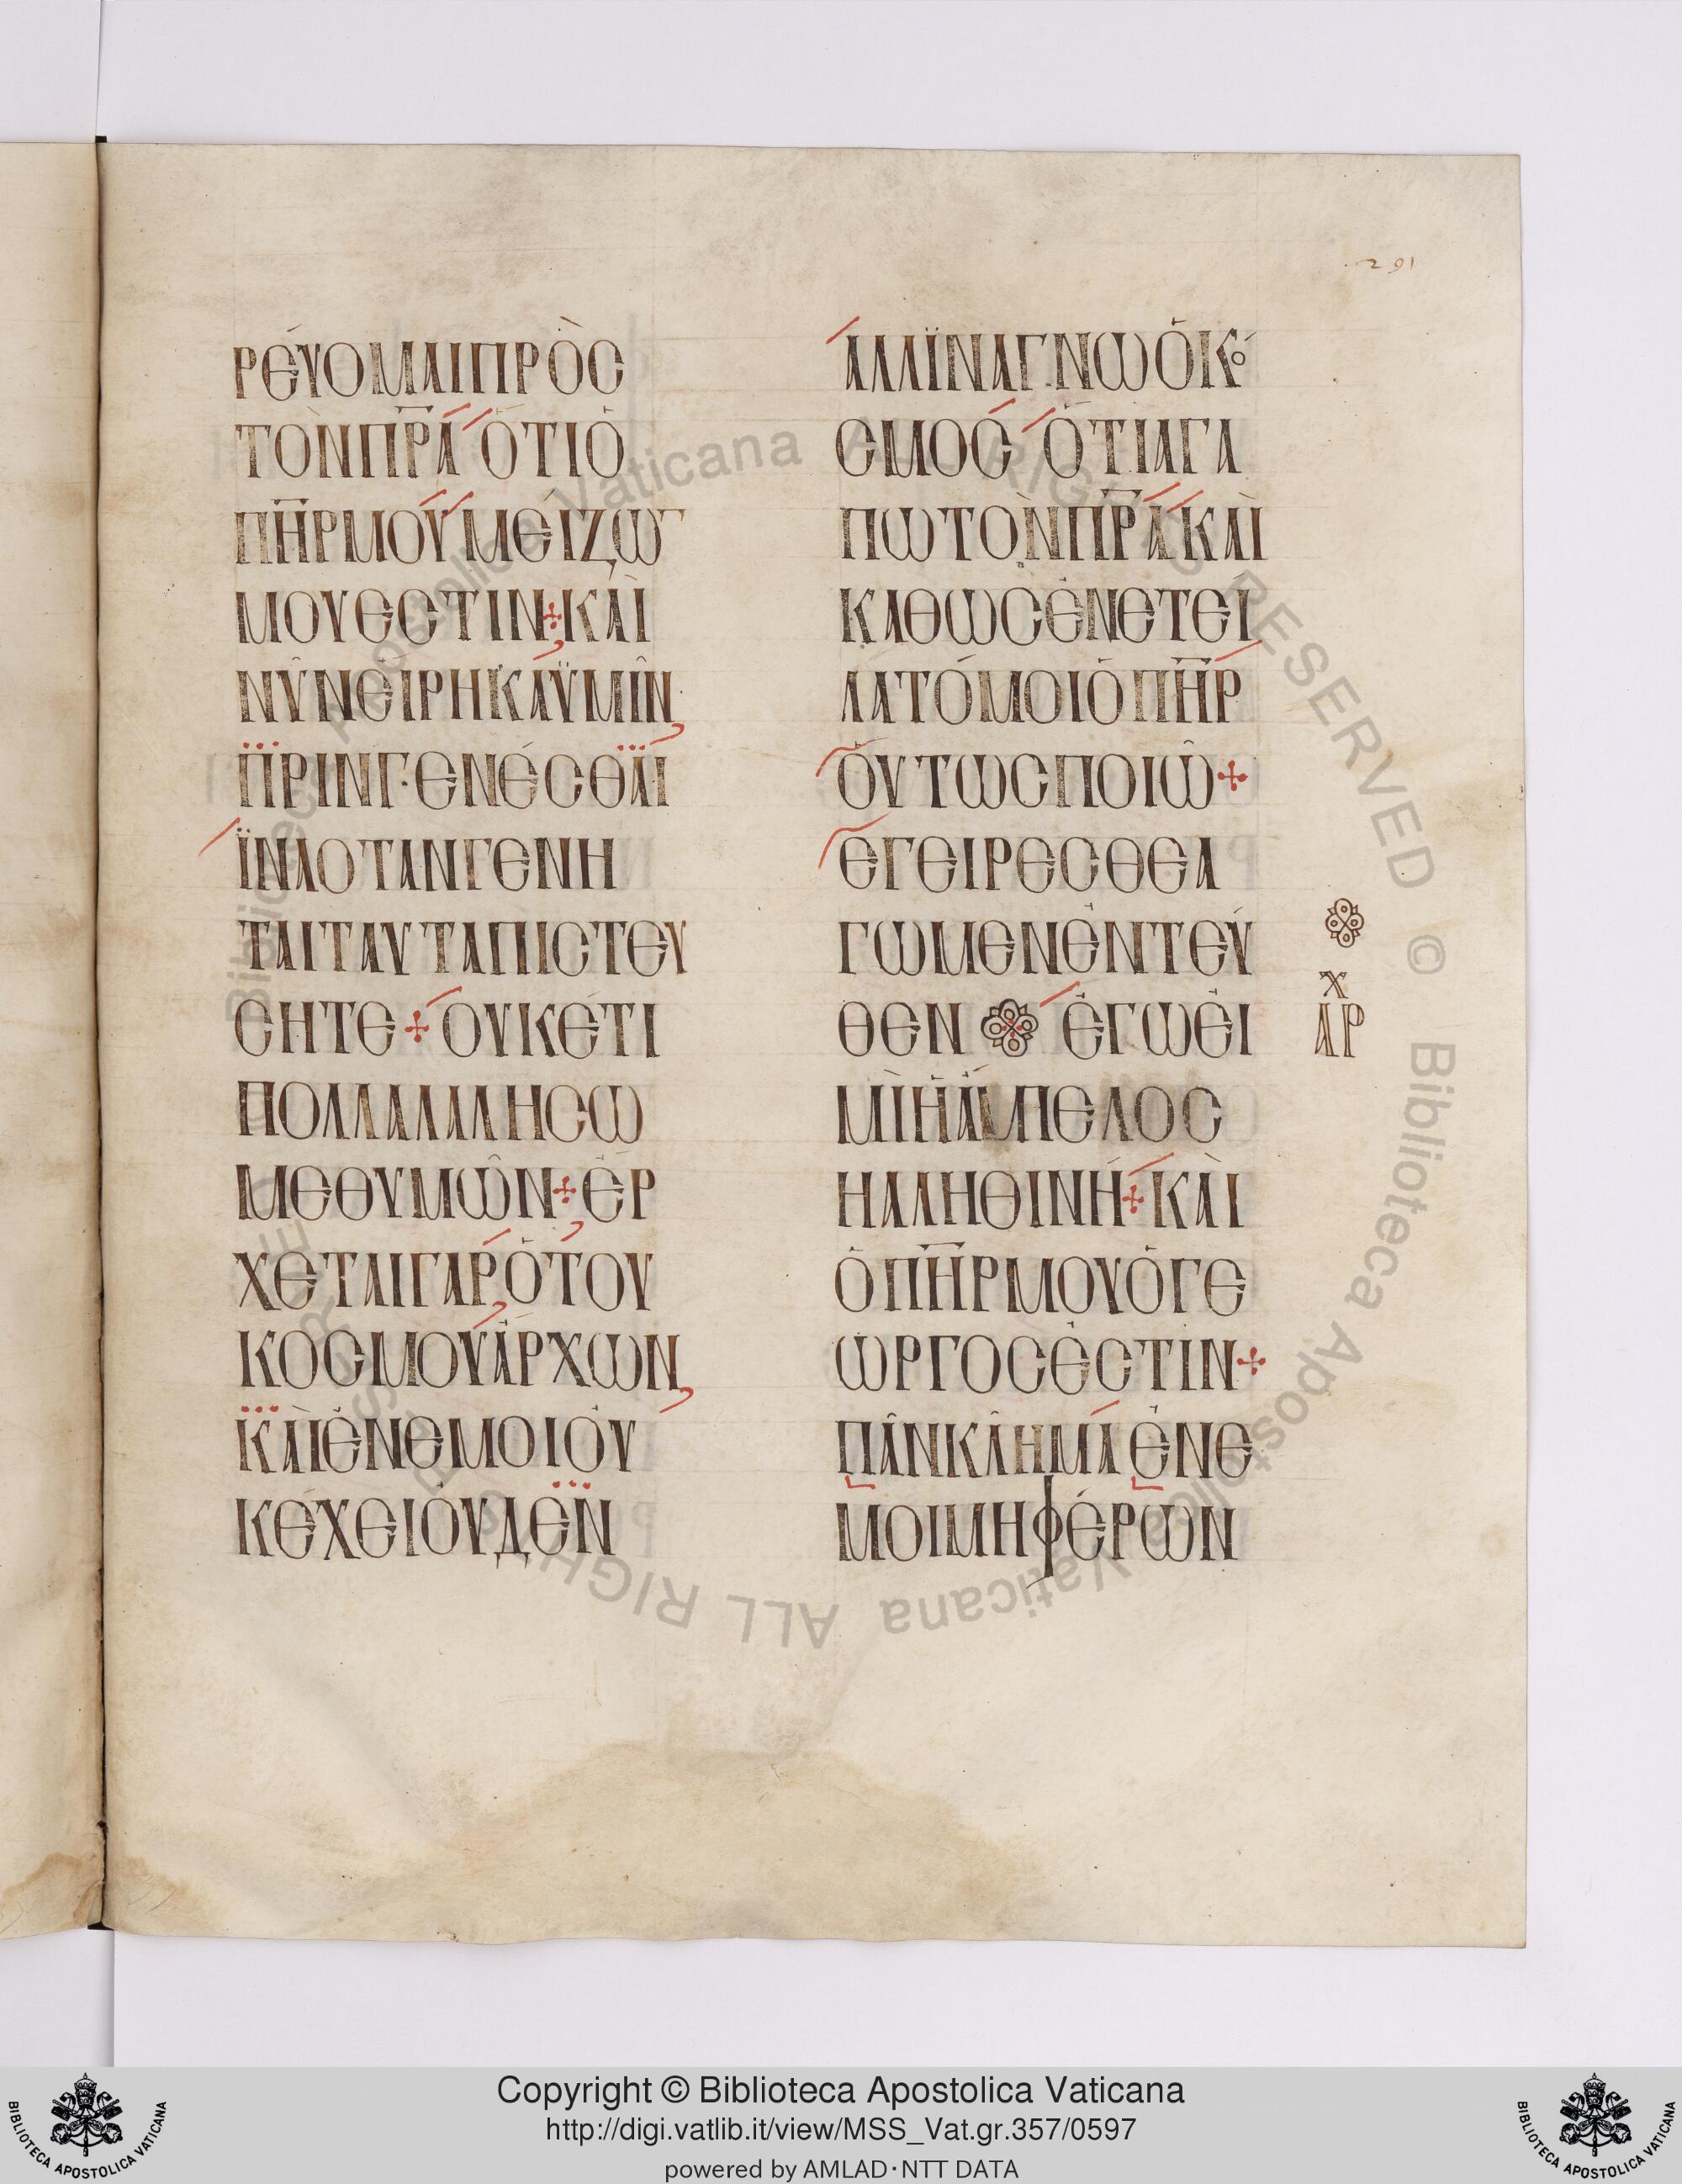 291
ΡΕΥΟΜΑΙΠΡΟΣ
ΤΟΝΠΡΑ ΟΤΙΟ
ΠΗΡΜΟΥΜΕΙΖΩ
ΜΟΥΕΣΤΙΝ·ΚΑΙ
ΝΥΝΕΙΡΗΚΑΫΜΙΝ
ΠΡΙΝΓΕΝΕΣΘΑΙ
ΪΝΑΟΤΑΝΓΕΝΗ
ΤΑΙΤΑΥΤΑΠΙΣΤΕΥ
ΣΗΤΕ+ΟΥΚΕΤΙ
ΠΟΛΛΑΛΑΛΗΣΩ
ΜΕΘΥΜΩΝ+ΕΡ
ΧΕΤΑΙΓΑΡΟΤΟΥ
ΚΟΣΜΟΥΑΡΧΩΝ
ΚΑΙΕΝΕΜΟΙΟΥ
ΚΕΧΕΙΟΥΔΕΝ
ΑΛΛΪΝΑΓΝΩΟΚΟ
ΣΜΟΣ ΟΤΙΑΓΑ
ΠΩΤΟΝΠΡΑΚΑΙ
ΚΑΘΩΣΕΝΕΤΕΙ
ΛΑΤΟΜΟΙΟΠΗΡ
ΟΥΤΩΣΠΟΙΩ+
ΕΓΕΙΡΕΣΘΕΑ
ΓΩΜΕΝΕΝΤΕΥ
ΘΕΝ ΕΓΩΕΙ
ΜΙΗΑΜΠΕΛΟΣ
ΗΑΛΗΘΙΝΗ+ΚΑΙ
ΟΠΗΡΜΟΥΟΓΕ
ΩΡΓΟΣΕΣΤΙΝ+
ΠΑΝΚΛΗΜΑΕΝΕ
ΜΟΙΜΗΦΕΡΩΝ
Χ
ΑΡ
Biblioteca Apostolica Vaticana ALL RIGHTS RESERVED © Biblioteca Apostolica Vaticana ALL RIGHTS RESERVED ©
Copyright © Biblioteca Apostolica Vaticana
http://digi.vatlib.it/view/MSS_Vat.gr.357/0597
powered by AMLAD·NTT DATA
BIBLIOTECA APOSTOLICA VATICANA
BIBLIOTECA APOSTOLICA VATICANA